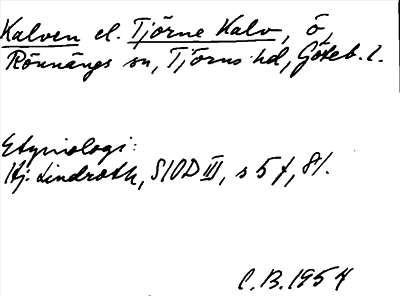 Kalven el. Tjörne Kalv, ö,
Rönnängs sn, Tjörns hd, Göteb. l.
Etymologi:
Hj. Lindroth, SIOD III, s 5 f, 81.
C.B. 1954